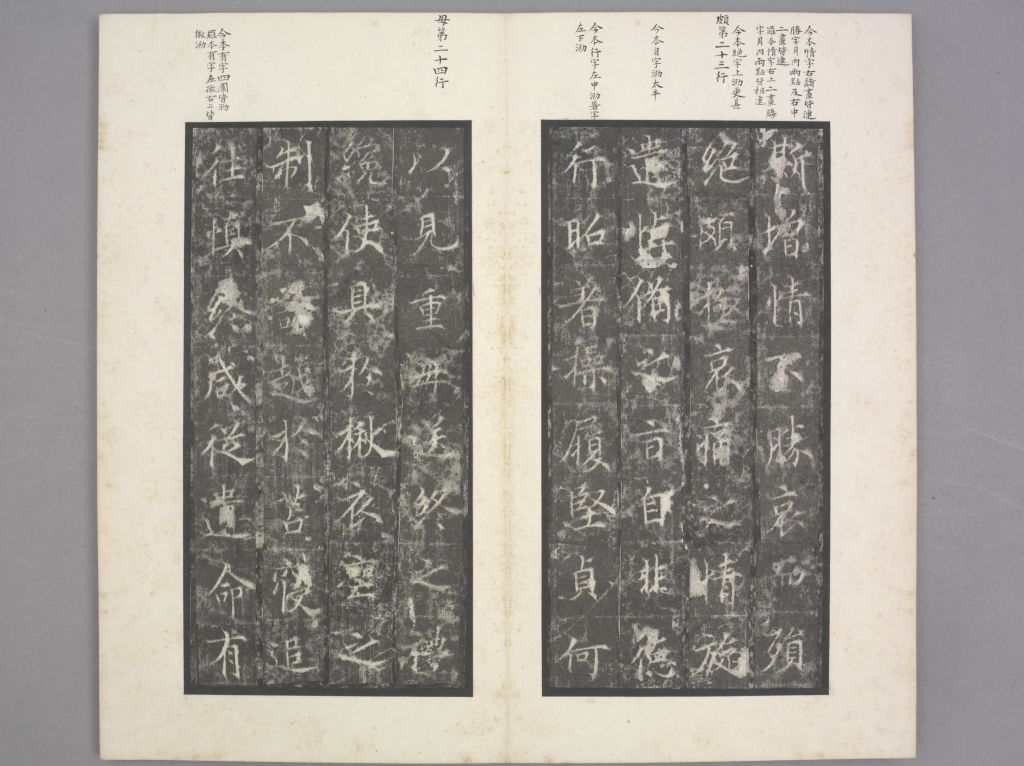 今本情字右諸畫皆連
勝字月內兩點及右中
二畫皆連
羅本情字右上二畫勝
字月內兩點皆相連
今本絕字上泐更甚
頗第二十三行
今本自字泐太半
今本行字左中泐著字
左下泐
斯增情不勝哀而殞
絕頗極哀痛之情旋
遣備自非德
行昭著操履堅貞何
毋第二十四行
今本有字四圍皆泐
羅本有字左微右上皆
微泐
以見重毋送終之禮
纔使具於楸衣塋之
制不許越於苫寢追
往慎終咸從遺命有